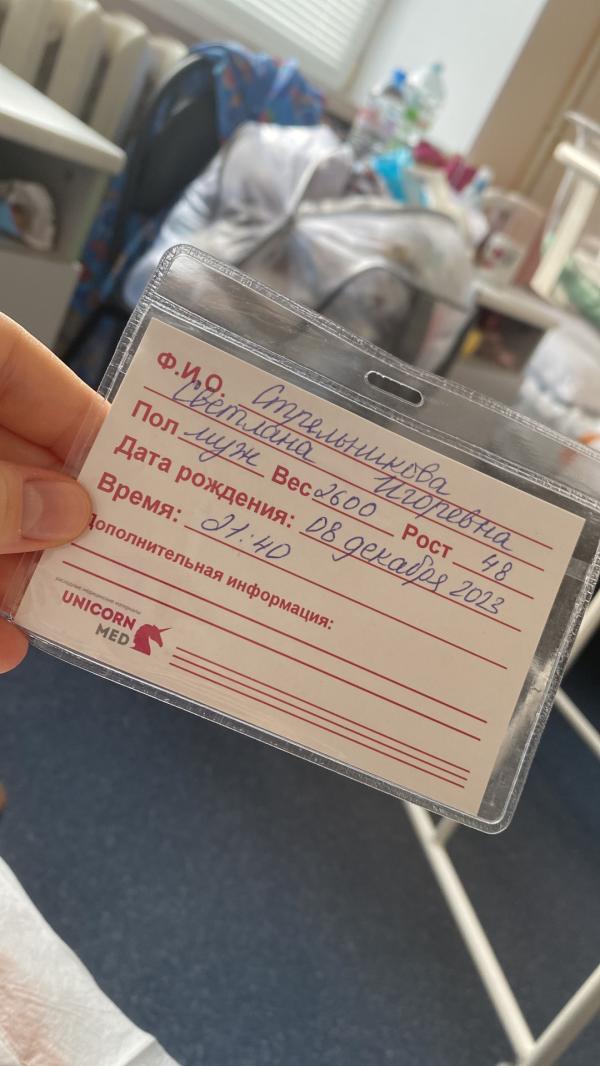 Ф.И.О. Стрельникова
Светлана Игоревна
Пол муж Вес 2600 Рост 48
Дата рождения: 08 декабря 2023
Время: 21:40
Дополнительная информация:
расходные медицинские материалы
UNICORN
MED